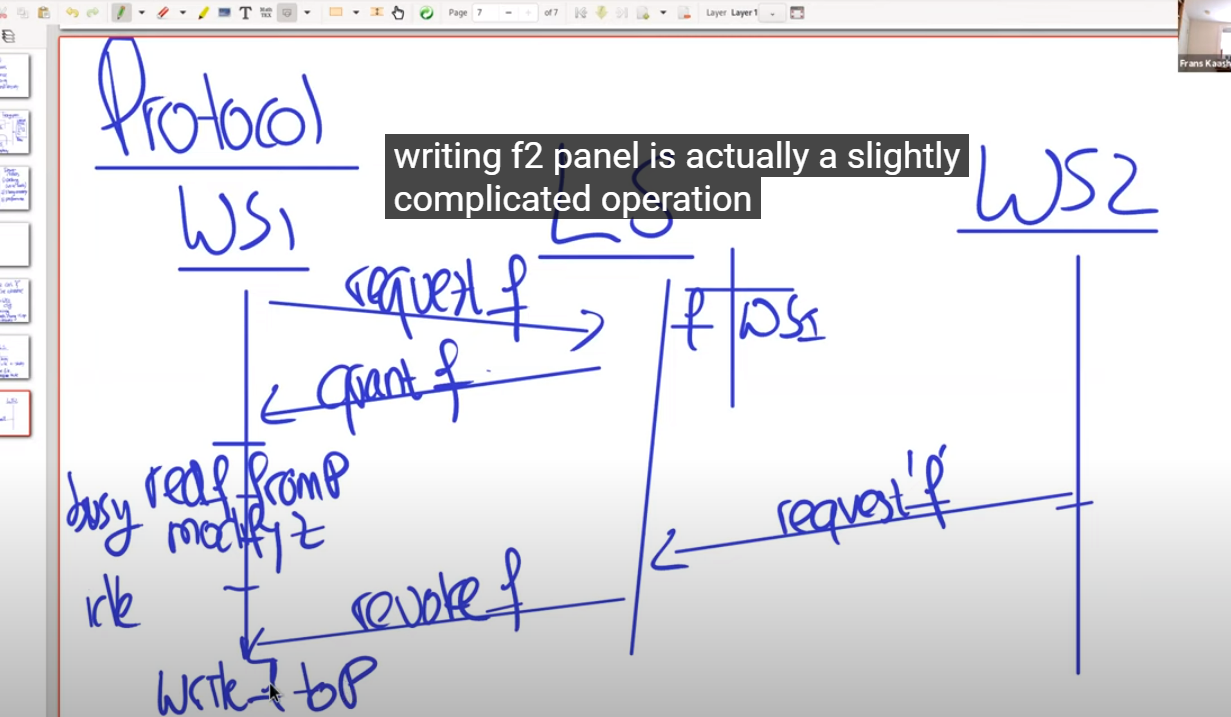 Page 7 of 7 Layer Layer 1
Frans Kaash
Protocol
writing f2 panel is actually a slightly
complicated operation
WS1 LS WS2
request f
f WS1
grant f
busy read f from P
modify z
request 'f'
idle
revoke f
write f to P